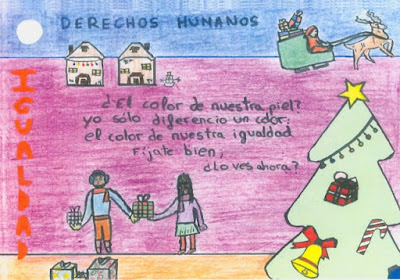 DERECHOS HUMANOS
IGUALDAD
¿El color de nuestra piel?
yo sólo diferencio un color:
el color de nuestra igualdad
Fíjate bien,
¿lo ves ahora?